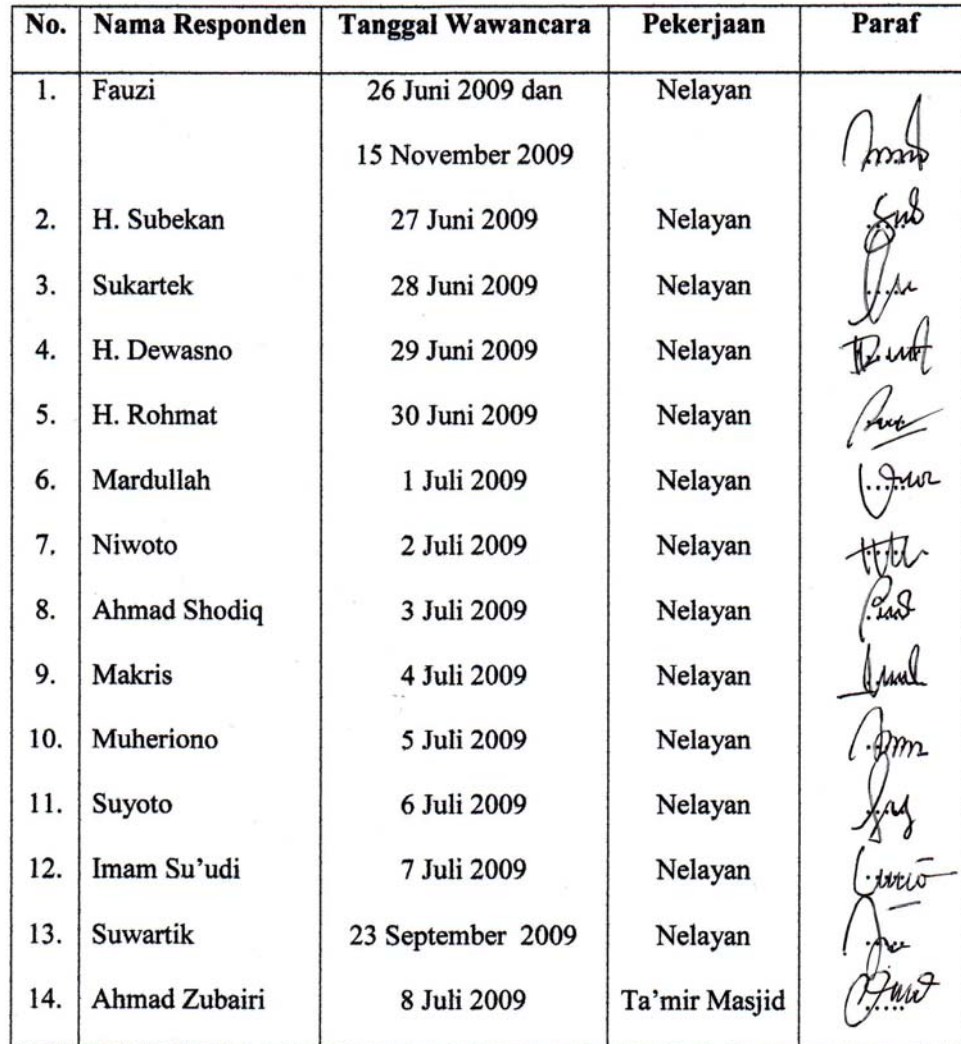 No. Nama Responden Tanggal Wawancara Pekerjaan Paraf
1. Fauzi 26 Juni 2009 dan Nelayan
15 November 2009
2. H. Subekan 27 Juni 2009 Nelayan
3. Sukartek 28 Juni 2009 Nelayan
4. H. Dewasno 29 Juni 2009 Nelayan
5. H. Rohmat 30 Juni 2009 Nelayan
6. Mardullah 1 Juli 2009 Nelayan
7. Niwoto 2 Juli 2009 Nelayan
8. Ahmad Shodiq 3 Juli 2009 Nelayan
9. Makris 4 Juli 2009 Nelayan
10. Muheriono 5 Juli 2009 Nelayan
11. Suyoto 6 Juli 2009 Nelayan
12. Imam Su’udi 7 Juli 2009 Nelayan
13. Suwartik 23 September 2009 Nelayan
14. Ahmad Zubairi 8 Juli 2009 Ta’mir Masjid